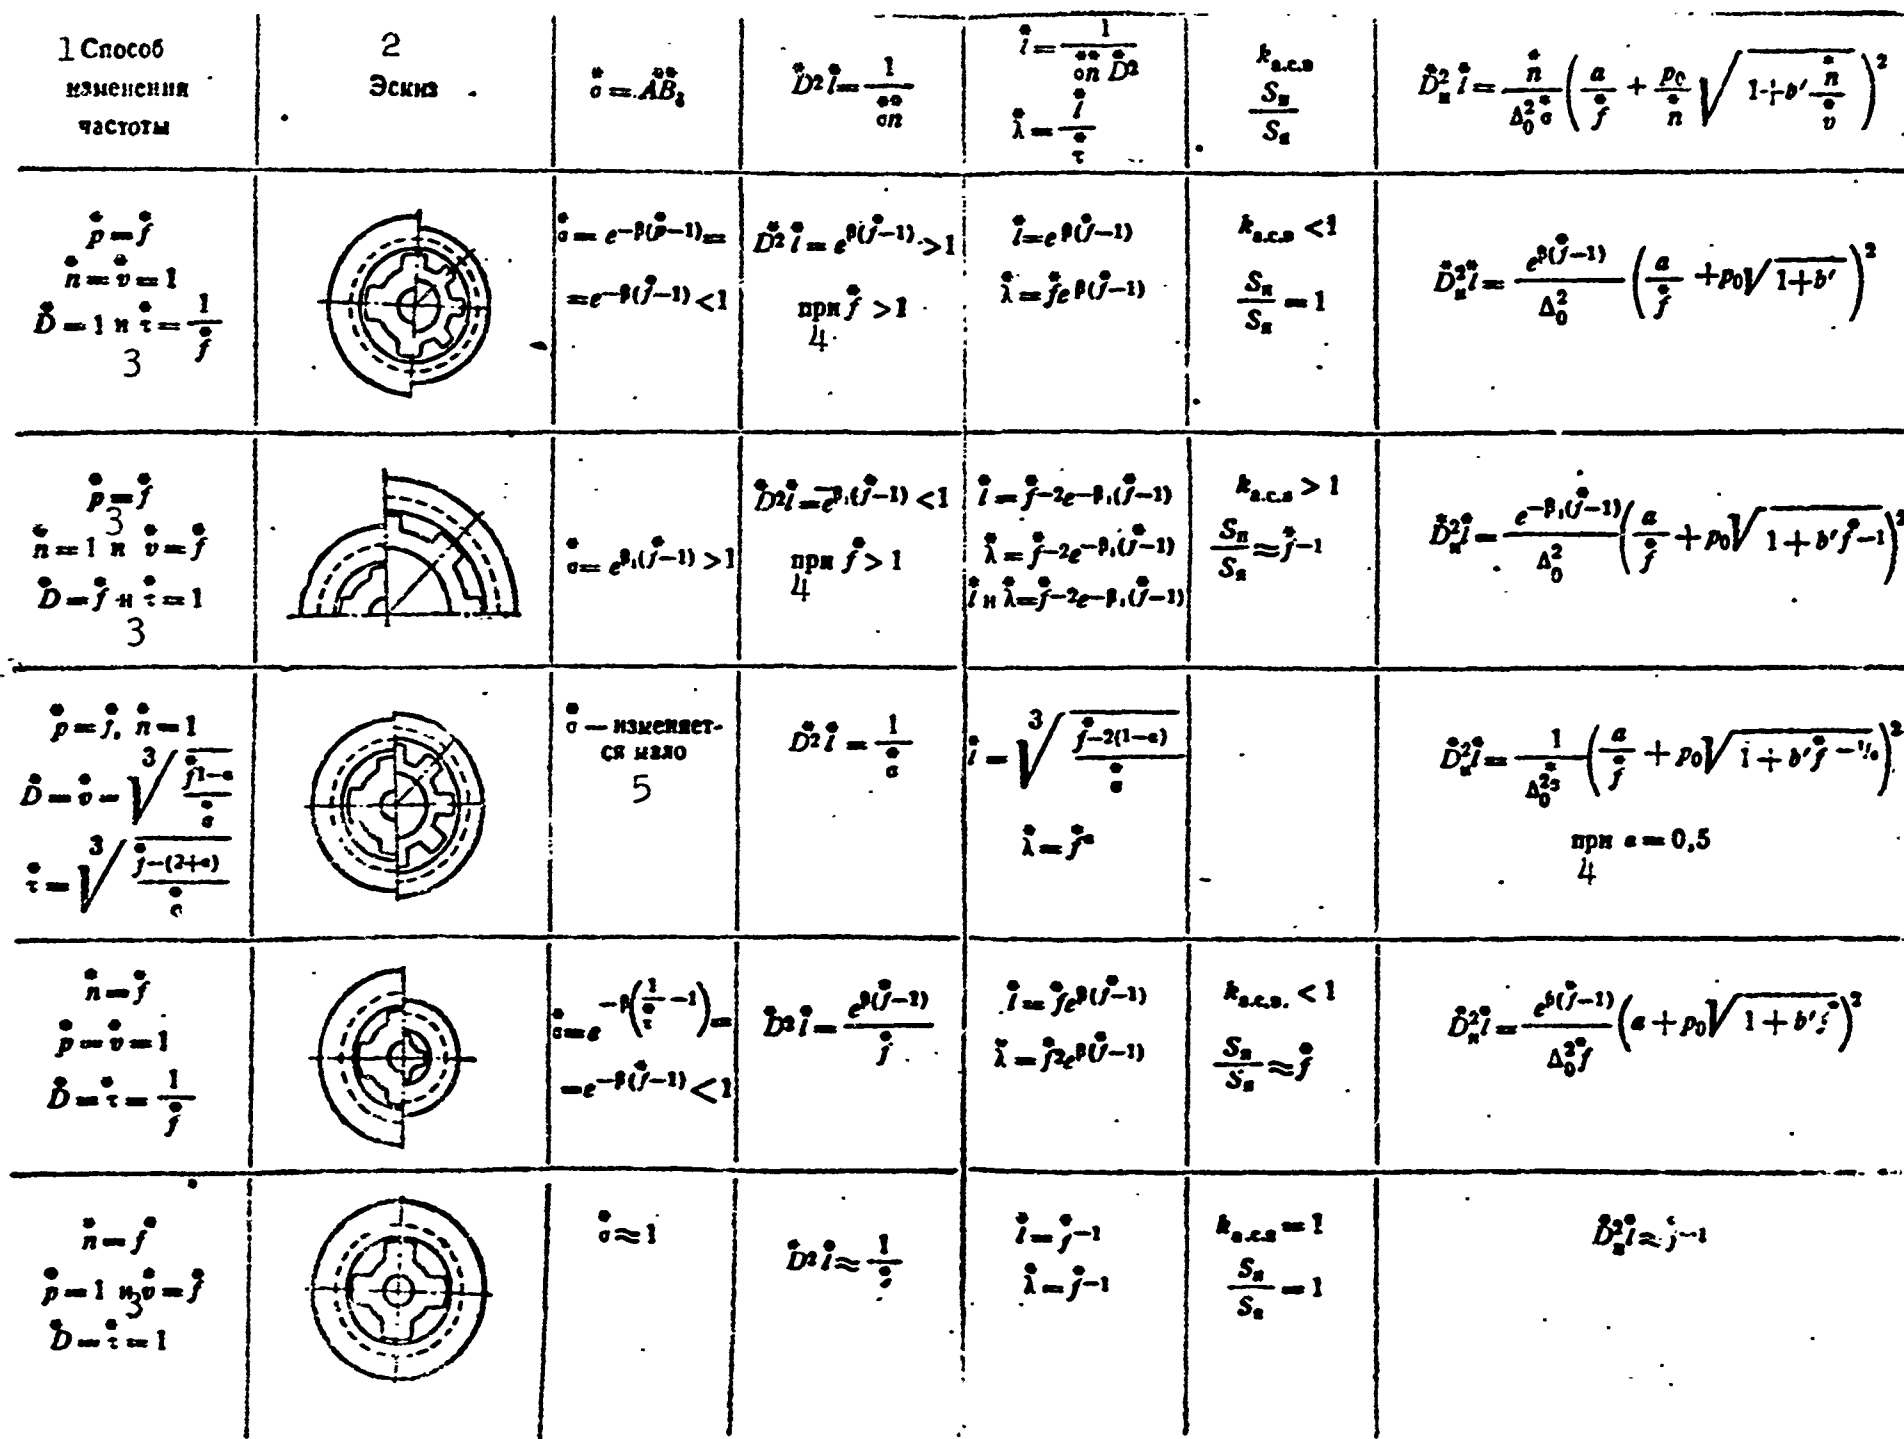 1 Способ
изменения
частоты
2
Эскиз
σ* = A*B*δ
D*² l* = 1/(σ* n*)
l* = 1/(σ* n* D*²)
λ* = l*/τ*
kз.с.в
Sп/Sя
D*н² l* = n*/(Δ0² σ*) (a/f* + p0/n* √(1+b' n*/v*))²
p* = f*
n* = v* = 1
D* = 1 и τ* = 1/f*
3
σ* = e^−β(p*−1) =
= e^−β(f*−1) < 1
D*² l* = e^β(f*−1) > 1
при f* > 1
4
l* = e^β(f*−1)
λ* = f* e^β(f*−1)
kз.с.в < 1
Sп/Sя = 1
D*н² l* = e^β(f*−1)/Δ0² (a/f* + p0 √(1+b'))²
p* = f*
3
n* = 1 и v* = f*
D* = f* и τ* = 1
3
σ* = e^β₁(f*−1) > 1
D*² l* = e^−β₁(f*−1) < 1
при f* > 1
4
l* = f*^−2 e^−β₁(f*−1)
λ* = f*^−2 e^−β₁(f*−1)
l* и λ* = f*^−2 e^−β₁(f*−1)
kз.с.в > 1
Sп/Sя ≈ f*^−1
D*н² l* = e^−β₁(f*−1)/Δ0² (a/f* + p0 √(1+b' f*^−1))²
p* = f*, n* = 1
D* = v* = ³√(f*^(1−α)/σ*)
τ* = ³√(f*^−(2+α)/σ*)
σ* — изменяет-
ся мало
5
D*² l* = 1/σ*
l* = ³√(f*^−2(1−α)/σ*)
λ* = f*^α
D*н² l* = 1/(Δ0² σ*) (a/f* + p0 √(1+b' f*^−1/6))²
при α = 0,5
4
n* = f*
p* = v* = 1
D* = τ* = 1/f*
σ* = e^−β(1/τ* −1) =
= e^−β(f*−1) < 1
D*² l* = e^β(f*−1)/f*
l* = f* e^β(f*−1)
λ* = f*² e^β(f*−1)
kз.с.в. < 1
Sп/Sя ≈ f*
D*н² l* = e^β(f*−1)/(Δ0² f*) (a + p0 √(1+b' f*))²
n* = f*
p* = 1 и v* = f*
3
D* = τ* = 1
σ* ≈ 1
D*² l* ≈ 1/f*
l* = f*^−1
λ* = f*^−1
kз.с.в = 1
Sп/Sя = 1
D*н² l* ≈ f*^−1